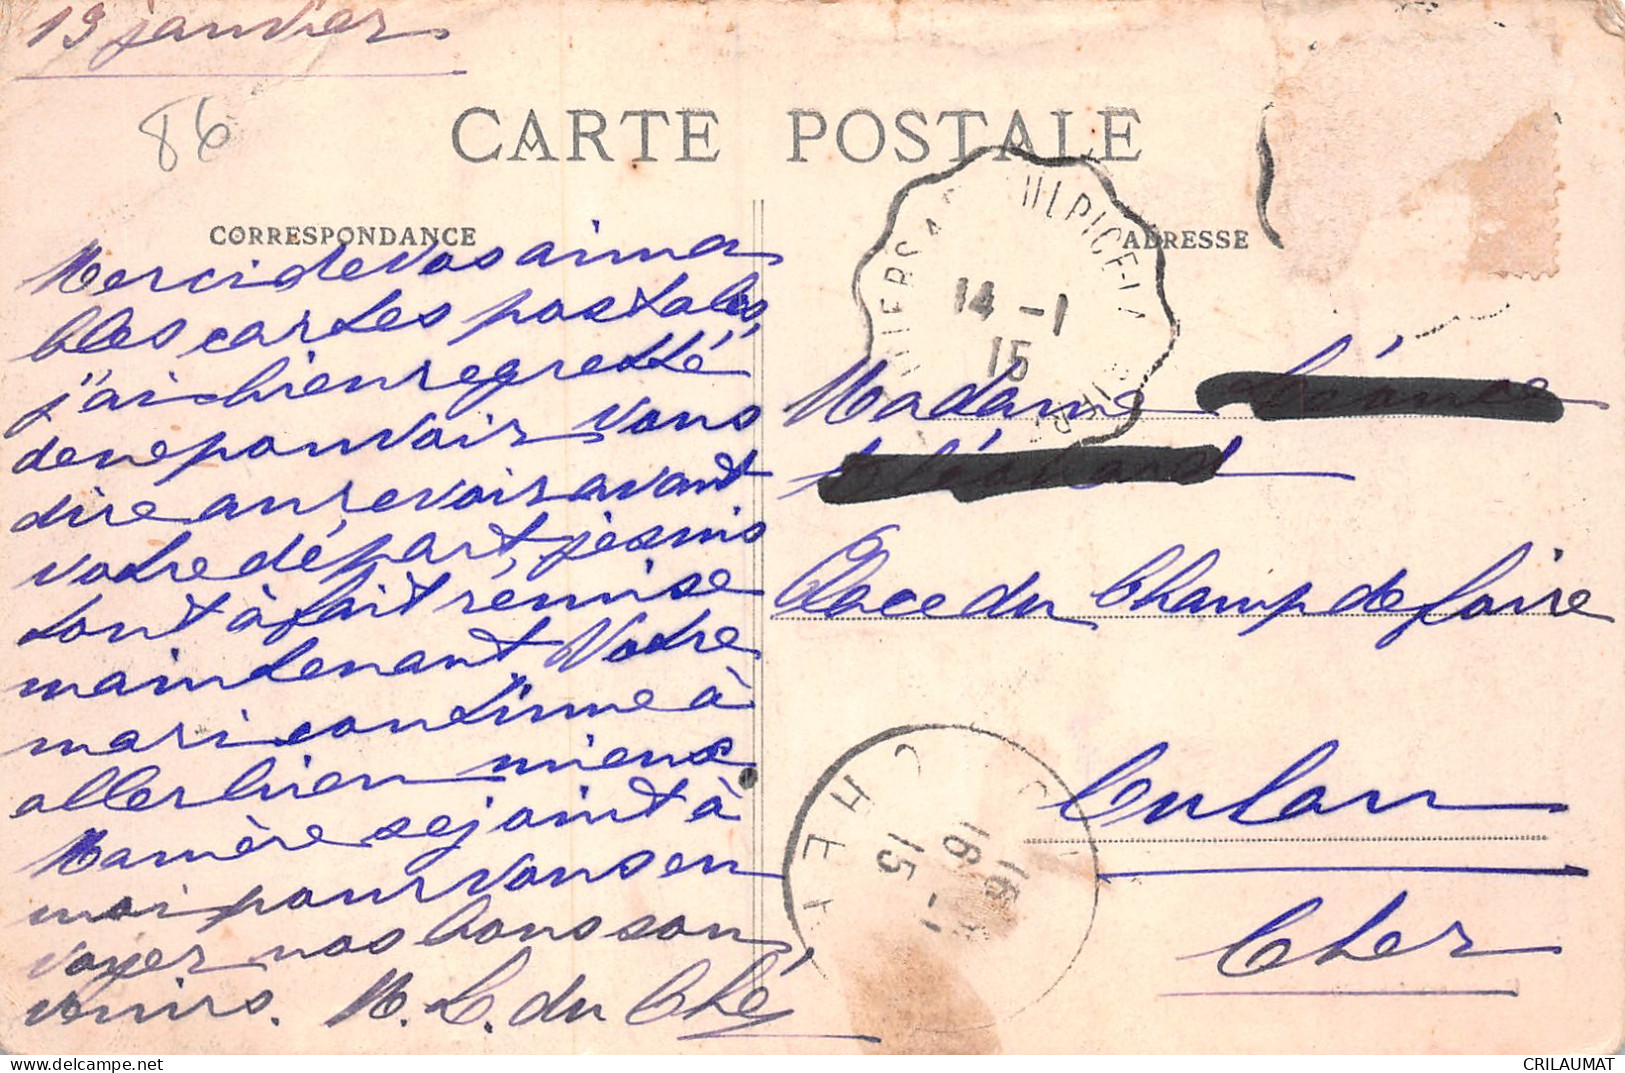 19 janvier
86
CARTE POSTALE
CORRESPONDANCE
ADRESSE
Merci de vos aima
bles cartes postales,
j'ai bien regretté
de ne pouvoir vous
dire au revoir avant
votre départ, je suis
tout à fait remise
maintenant. Votre
mari continue à
aller bien mieux
Ma mère se joint à
moi pour vous en
voyer nos bons sou
venirs. M. L. du Clé
14 -1
15
Madame
Place du Champ de foire
Culan
Cher
CHER
16 -1
15
CRILAUMAT